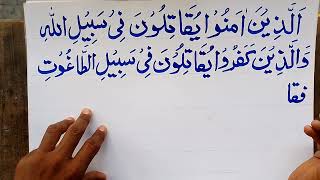 اَلَّذِيْنَ اٰمَنُوْا يُقَاتِلُوْنَ فِىْ سَبِيْلِ اللّٰهِ
وَالَّذِيْنَ كَفَرُوْا يُقَاتِلُوْنَ فِىْ سَبِيْلِ الطَّاغُوْتِ
فقا